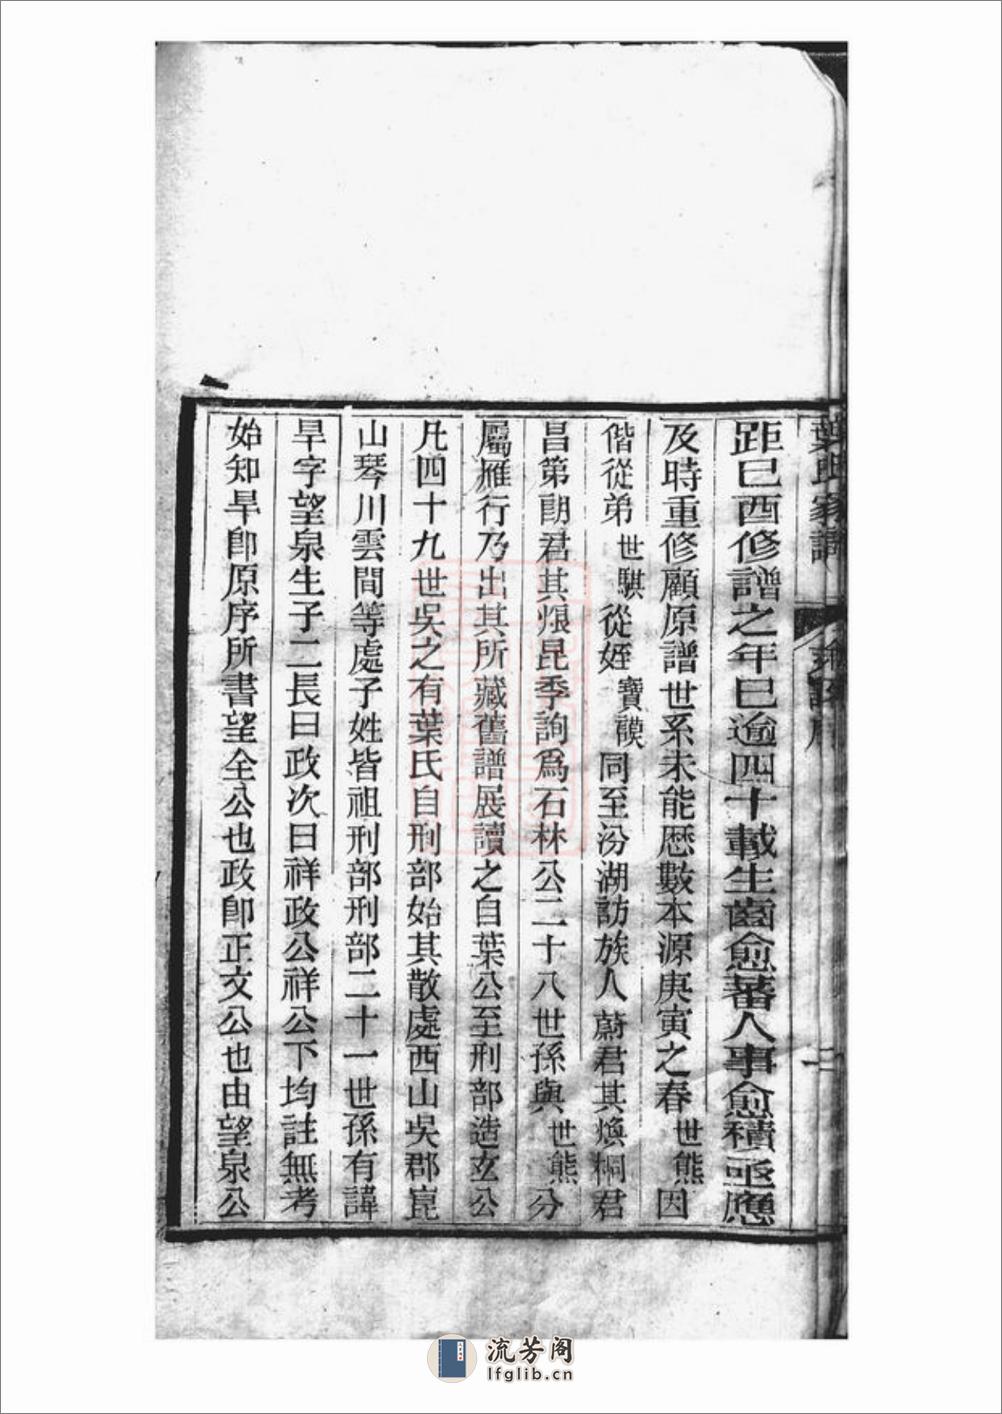 葉氏家譜
距巳酉修譜之年巳逾四十載生齒愈蕃人事愈積亟應
及時重修顧原譜世系未能歷數本源庚寅之春世熊因
偕從弟世騏從姪寶謨同至汾湖訪族人蔚君其煥桐君
昌第朗君其烺昆季詢爲石林公二十八世孫與世熊分
屬雁行乃出其所藏舊譜展讀之自葉公至刑部造玄公
凡四十九世吳之有葉氏自刑部始其散處西山吳郡崑
山琴川雲間等處子姓皆祖刑部刑部二十一世孫有諱
旱字望泉生子二長曰政次曰祥政公祥公下均註無考
始知旱卽原序所書望全公也政卽正文公也由望泉公
流芳阁
lfglib.cn